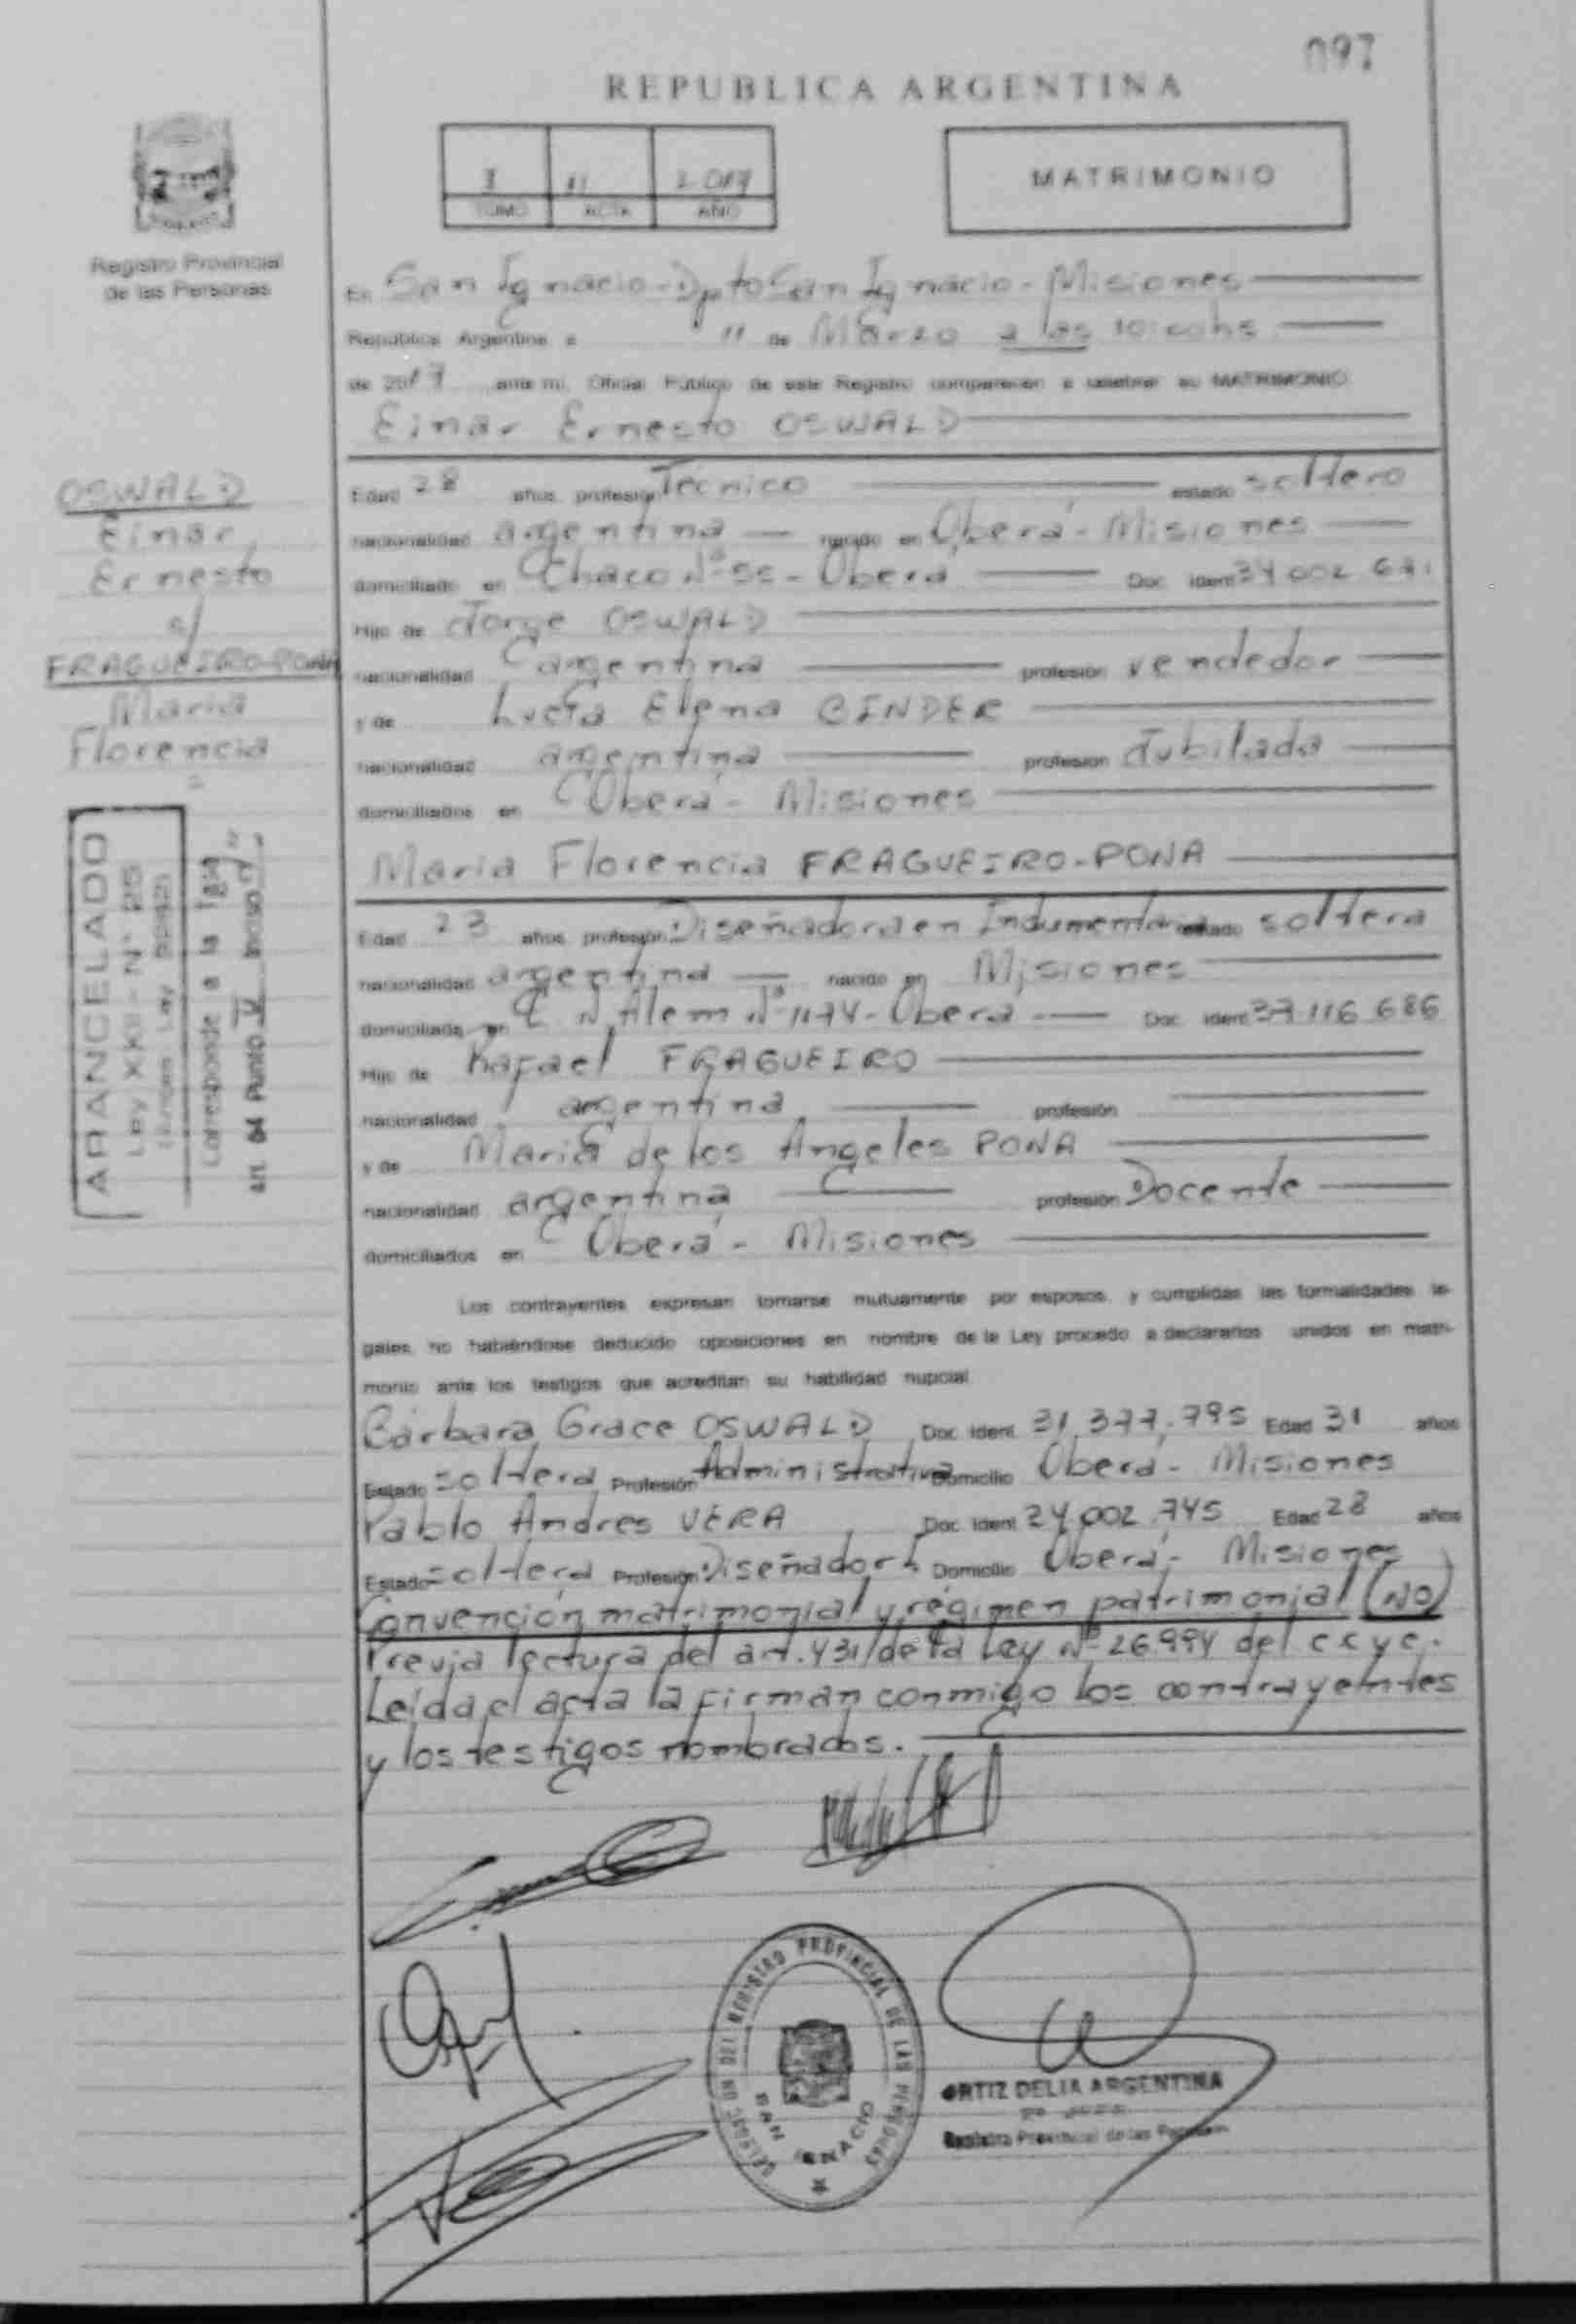 097
REPUBLICA ARGENTINA
I 11 2.017
TOMO ACTA AÑO
MATRIMONIO
Registro Provincial
de las Personas
En San Ignacio-Dpto San Ignacio-Misiones
República Argentina a 11 de Marzo a las 10:00hs
de 2017 ante mi, Oficial Público de este Registro comparecen a celebrar su MATRIMONIO
Einar Ernesto OSWALD
OSWALD
Einar
Ernesto
c/
FRAGUEIRO-PONA
Maria
Florencia
Edad 28 años, profesión Técnico estado soltero
nacionalidad argentina nacido en Oberá-Misiones
domiciliado en Chaco Nº 55-Oberá Doc. Ident 34 002 631
Hijo de Jorge OSWALD
nacionalidad argentina profesión vendedor
y de Lucía Elena CINDER
nacionalidad argentina profesión Jubilada
domiciliados en Oberá - Misiones
Maria Florencia FRAGUEIRO-PONA
Edad 23 años, profesión Diseñadora en Indumentaria estado soltera
nacionalidad argentina nacido en Misiones
domiciliada en L N Alem Nº 1174-Oberá Doc. Ident 37 116 686
Hijo de Rafael FRAGUEIRO
nacionalidad argentina profesión
y de Maria de los Angeles PONA
nacionalidad argentina profesión Docente
domiciliados en Oberá - Misiones
ARANCELADO
Ley XXII - Nº 25
Corresponde a la Tasa
art. 04 Punto IV Inciso
Los contrayentes expresan tomarse mutuamente por esposos, y cumplidas las formalidades le-
gales, no habiéndose deducido oposiciones en nombre de la Ley procedo a declararlos unidos en matri-
monio ante los testigos que acreditan su habilidad nupcial
Bárbara Grace OSWALD Doc. Ident. 31.377.795 Edad 31 años
Estado soltera Profesión Administrativa Domicilio Oberá - Misiones
Pablo Andres VERA Doc. Ident 24,002.745 Edad 28 años
Estado soltera Profesión Diseñador Domicilio Oberá - Misiones
Convención matrimonial y régimen patrimonial (NO)
Previa lectura del art. 431 de la Ley Nº 26.994 del c c y c.
Leída el acta la firman conmigo los contrayentes
y los testigos nombrados.
DELEGACION DEL REGISTRO PROVINCIAL DE LAS PERSONAS
SAN IGNACIO
ORTIZ DELIA ARGENTINA
Registro Provincial de las Personas